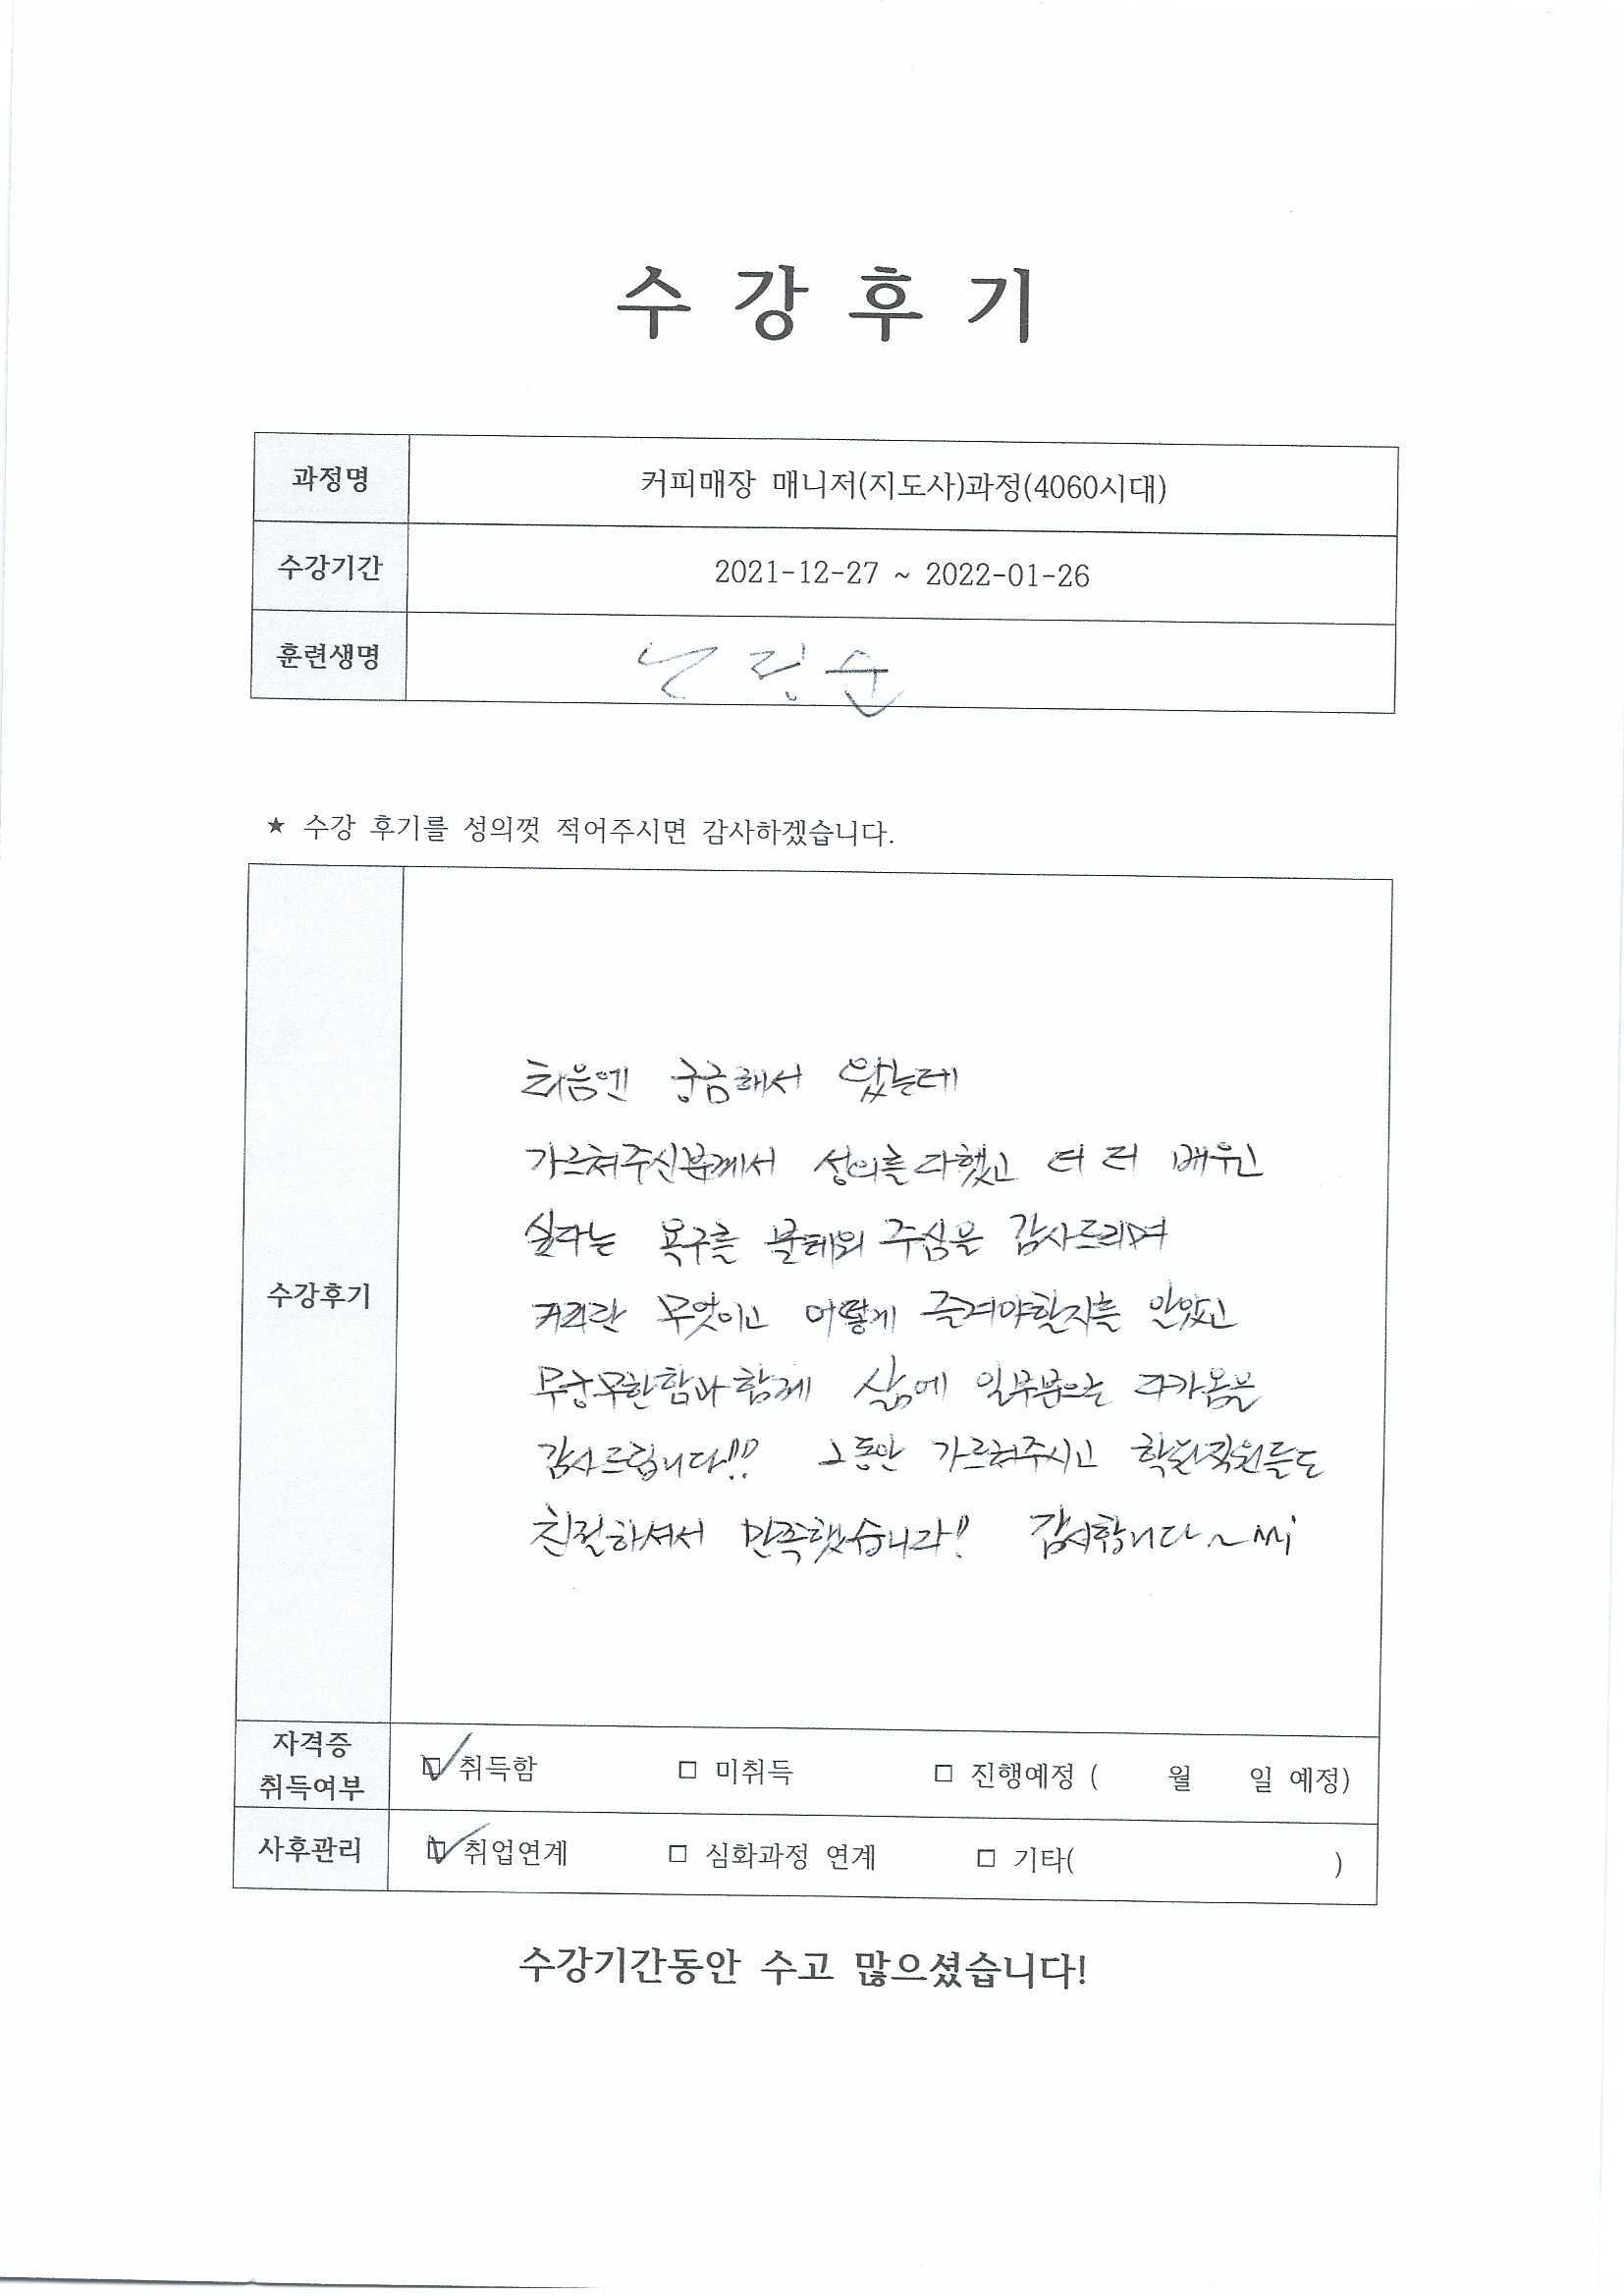 수 강 후 기
과정명 커피매장 매니저(지도사)과정(4060시대)
수강기간 2021-12-27 ~ 2022-01-26
훈련생명
★ 수강 후기를 성의껏 적어주시면 감사하겠습니다.
수강후기
처음엔 궁금해서 왔는데
가르쳐주신분께서 성의를 다했고 더 더 배우고
싶다는 욕구를 주심을 감사드리며
커피란 무엇이고 어떻게 즐겨야할지를 알았고
무궁무한함과 함께 삶에 일부분으로 다가옴을
감사드립니다!!! 그동안 가르쳐주시고 학원직원들도
친절하셔서 만족했습니다!! 감사합니다~
자격증
취득여부 ☑ 취득함 □ 미취득 □ 진행예정 ( 월 일 예정)
사후관리 ☑ 취업연계 □ 심화과정 연계 □ 기타( )
수강기간동안 수고 많으셨습니다!